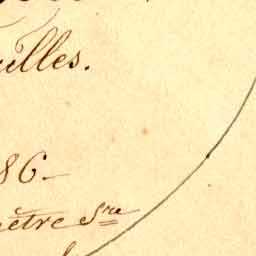 illes.
86_
ètre Sre